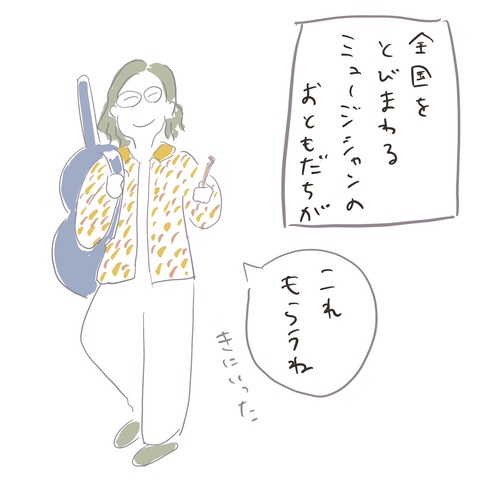 全国を
とびまわる
ミュージシャンの
おともだちが
これ
もらうね
きにいった